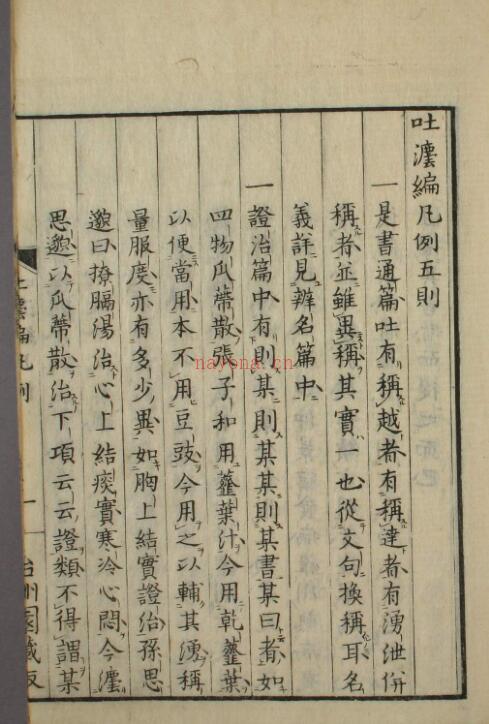 吐瀍編凡例五則
一是書通篇吐有稱越者有稱達者有湧泄併
稱者並雖異稱其實一也從文句換稱耳名
義詳見辨名篇中
一證治篇中有則某則某某則某書某曰者如
四物瓜蔕散張子和用虀葉汁今用乾虀葉
以便當用本不用豆豉今用之以輔其湧稱
量服度亦有多少異如胸上結實證治孫思
邈曰撩膈湯治心上結痰實寒冷心悶今瀍
思邈以瓜蔕散治下項云云證類不得謂某
凡例
一
nayona.cn